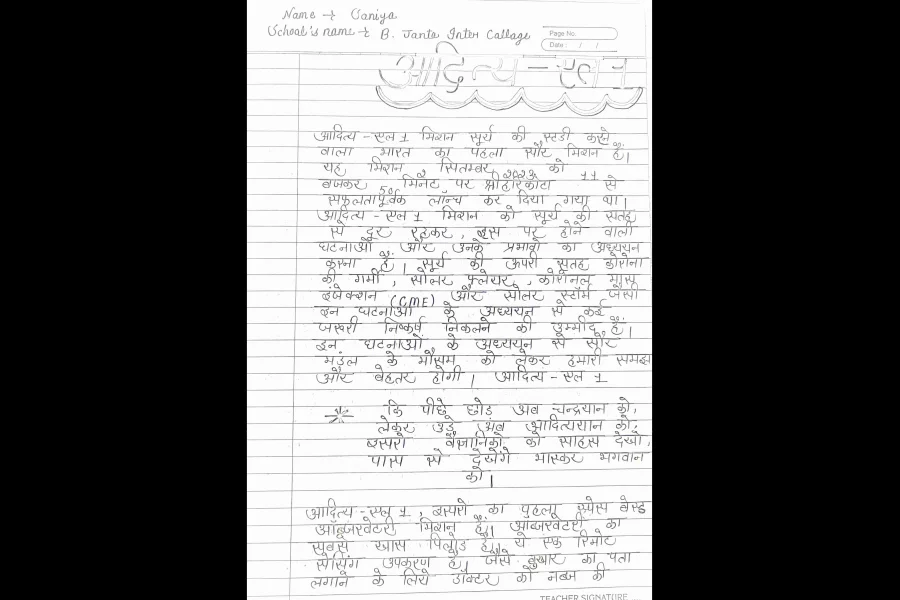 Name → Saniya
School's name → B. Janta Inter Callage
Page No.
Date: / /
आदित्य - एल 1
आदित्य - एल 1 मिशन सूर्य की स्टडी करने
वाला भारत का पहला सौर मिशन है।
यह मिशन 2 सितम्बर 2023 को 11
बजकर 50 मिनट पर श्रीहरिकोटा से
सफलतापूर्वक लॉन्च कर दिया गया था।
आदित्य - एल 1 मिशन को सूर्य की सतह
से दूर रहकर, इस पर होने वाली
घटनाओं और उनके प्रभावों का अध्ययन
करना है। सूर्य की ऊपरी सतह कोरोना
की गर्मी, सोलर फ्लेयर, कोरोनल मास
इजेक्शन (CME) और सोलर स्टॉर्म जैसी
इन घटनाओं के अध्ययन से कई
जरूरी निष्कर्ष निकलने की उम्मीद है।
इन घटनाओं के अध्ययन से सौर
मंडल के मौसम को लेकर हमारी समझ
और बेहतर होगी। आदित्य - एल 1
कि पीछे छोड़ अब चन्द्रयान को,
लेकर उड़े अब आदित्ययान को,
इसरो वैज्ञानिकों का साहस देखो,
पास से देखेंगे भास्कर भगवान
को।
आदित्य - एल 1, इसरो का पहला स्पेस बेस्ड
ऑब्जरवेटरी मिशन है। ऑब्जरवेटरी का
सबसे खास पिलोड है। ये एक रिमोट
सेंसिंग उपकरण है। जैसे बुखार का पता
लगाने के लिये डॉक्टर को नब्ज की
TEACHER SIGNATURE